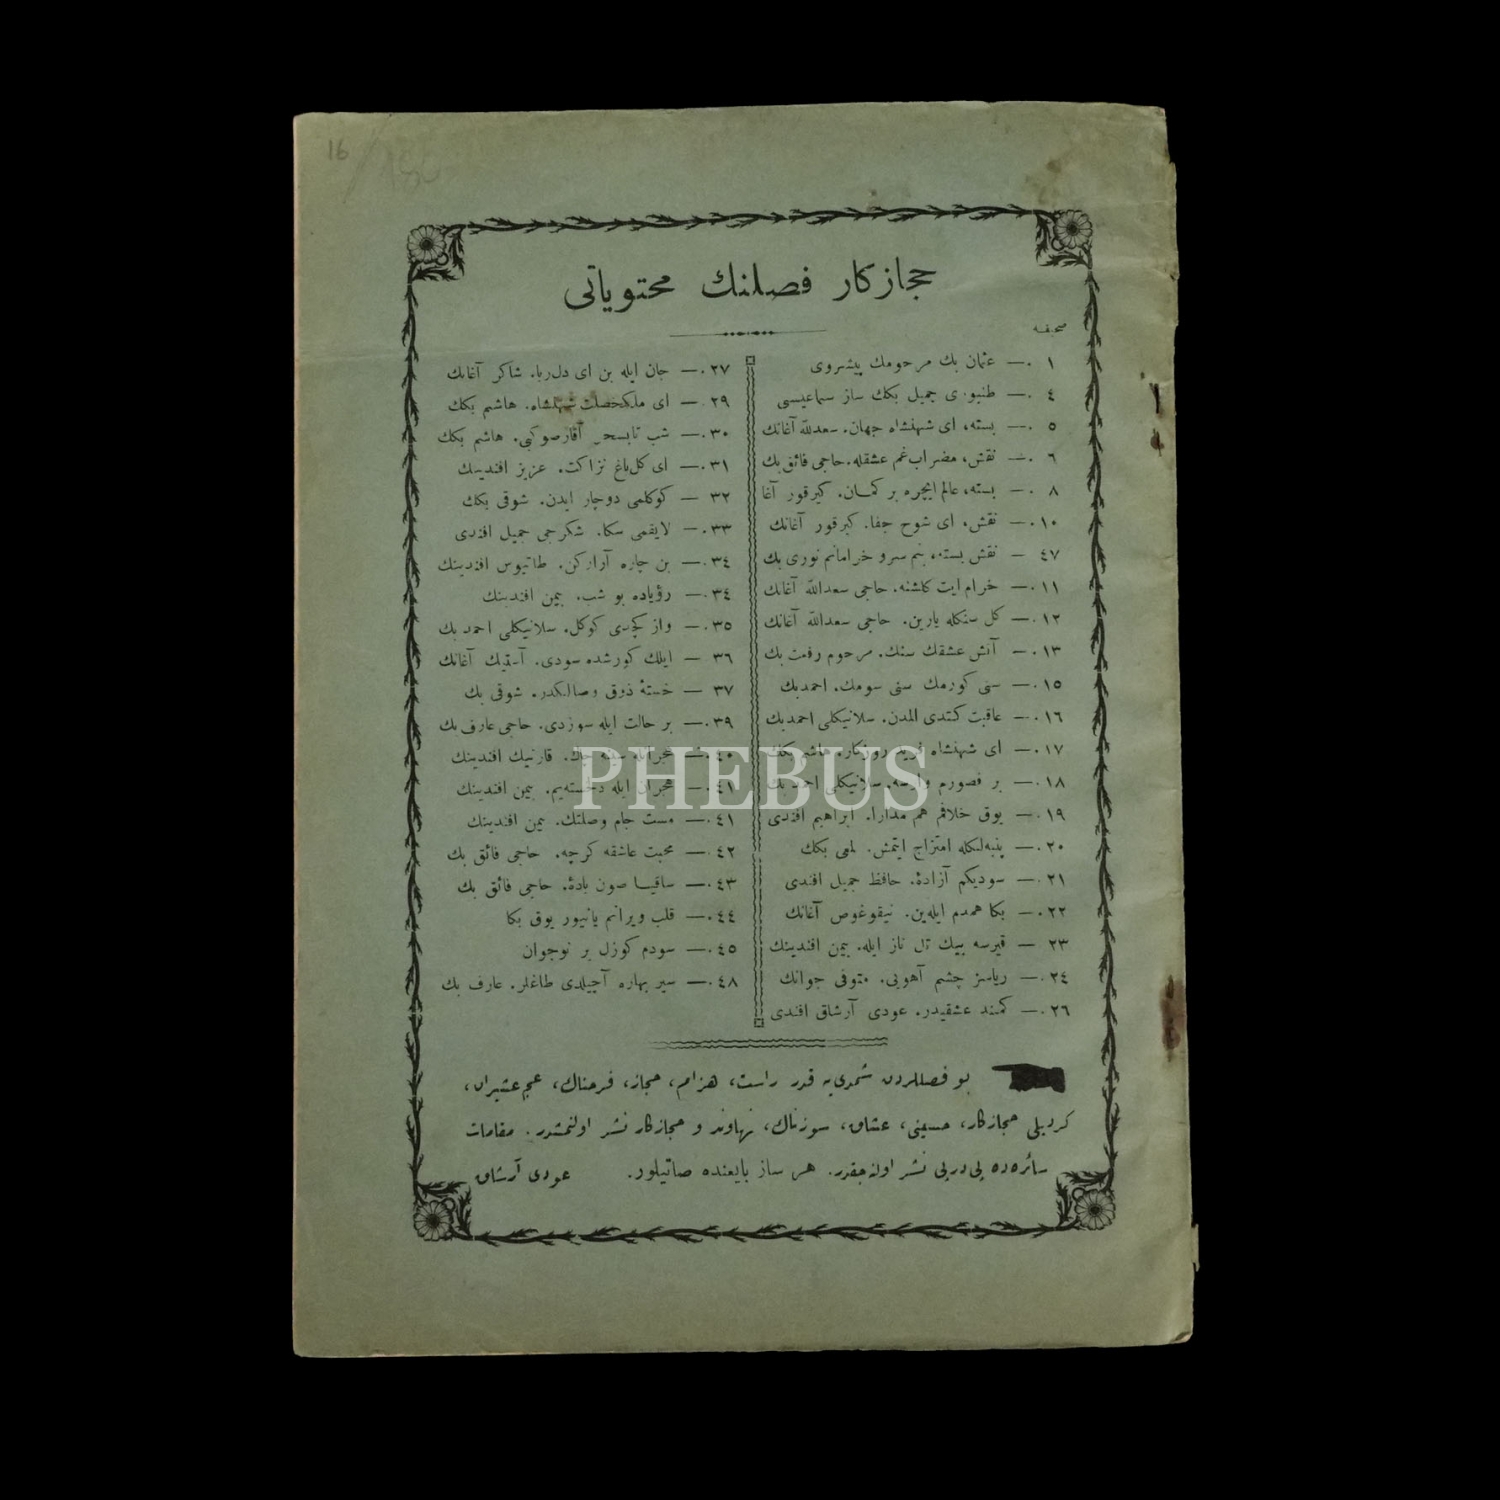 16
حجازكار فصلنك محتوياتی
صحيفه
١ .— عثمان بك مرحومك پيشروی
٤ .— طنبوری جميل بكك ساز سماعيسی
٥ .— بسته، ای شهنشاه جهان. سعدالله آغانك
٦ .— نقش، مضراب غم عشقله. حاجی فائق بك
٨ .— بسته، عالم ايچره بر كمان. كيرقور آغا
١٠.— نقش، ای شوح جفا. كيرقور آغانك
٤٧ — نقش بسته، بنم سرو خرامانم نوری بك
١١.— خرام ايت كلشنه. حاجی سعدالله آغانك
١٢.— كل سنكله يارين. حاجی سعدالله آغانك
١٣.— آتش عشقك سنك. مرحوم رفعت بك
١٥.— سنی كورمك سنی سومك. احمدبك
١٦.— عاقبت كتدی المدن. سلانيكلی احمدبك
١٧.— ای شهنشاه فريد روزكار. هاشم بكك
١٨.— بر قصورم وارسه. سلانيكلی احمد بك
١٩.— يوق خلافم هم مدارا. ابراهيم افندی
٢٠.— امتزاج ايتمش. لمعی بكك
٢١.— سوديكم آزادهٔ. حافظ جميل افندی
٢٢.— بكا همدم ايله‌ين. نيقوغوص آغانك
٢٣ — قيرسه بيك تل ناز ايله. يمن افندينك
٢٤.— رياسز چشم آهوبی. متوفی جوانك
٢٦.— كمند عشقيدر. عودی آرشاق افندی
٢٧.— جان ايله بن ای دل‌ربا. شاكر آغانك
٢٩. — ای ملكخصلت شهنشاه. هاشم بكك
٣٠.— شب تابسحر آقارصوكبی. هاشم بكك
٣١.— ای كل‌باغ نزاكت. عزيز افندينك
٣٢ — كوكلمی دوچار ايدن. شوقی بكك
٣٣.— لايقمی سكا. شكرجی جميل افندی
٣٤.— بن چاره آراركن. طاتيوس افندينك
٣٤.— رؤياده بو شب. يمن افندينك
٣٥.— واز كچدی كوكل. سلانيكلی احمد بك
٣٦ — ايلك كورشده سودی. آستيك آغانك
٣٧ — خستهٔ ذوق وصالكدر. شوقی بك
٣٩.— بر حالت ايله سوزدی. حاجی عارف بك
٤٠.— خنجرابله سينه چك. قارنيك افندينك
٤١.— هجران ايله دلخسته‌يم. يمن افندينك
٤١.— مست جام وصلتك. يمن افندينك
٤٢.— محبت عاشقه كرچه. حاجی فائق بك
٤٣.— ساقيا صون بادهٔ. حاجی فائق بك
٤٤.— قلب ويرانم يانيور يوق بكا
٤٥.— سودم كوزل بر نوجوان
٤٨.— سير بهاره آچيلدی طاغلر. عارف بك
بو فصللردن شمدی‌يه قدر راست، هزام، حجاز، فرحناك، عجم‌عشيران،
كرديلی حجازكار، حسينی، عشاق، سوزناك، نهاوند و حجازكار نشر اولنمشدر. مقامات
سائره‌ده پی‌درپی نشر اولنه‌جقدر. هر ساز بايعنده صاتيلور. عودی آرشاق
PHEBUS